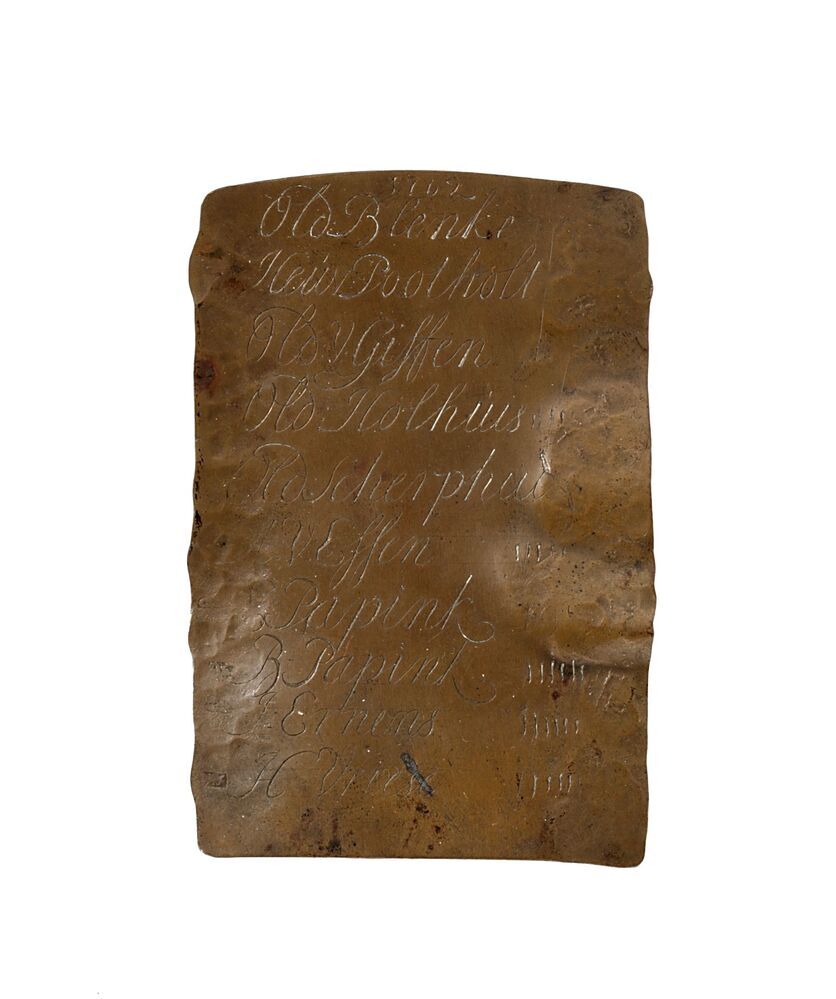 1762
Old Blenke
New Pootholt
Old V Giffen
Old Holhuis
Old Scherphui
V Effen
Papink
B Papink
J Ernens
H Vriese